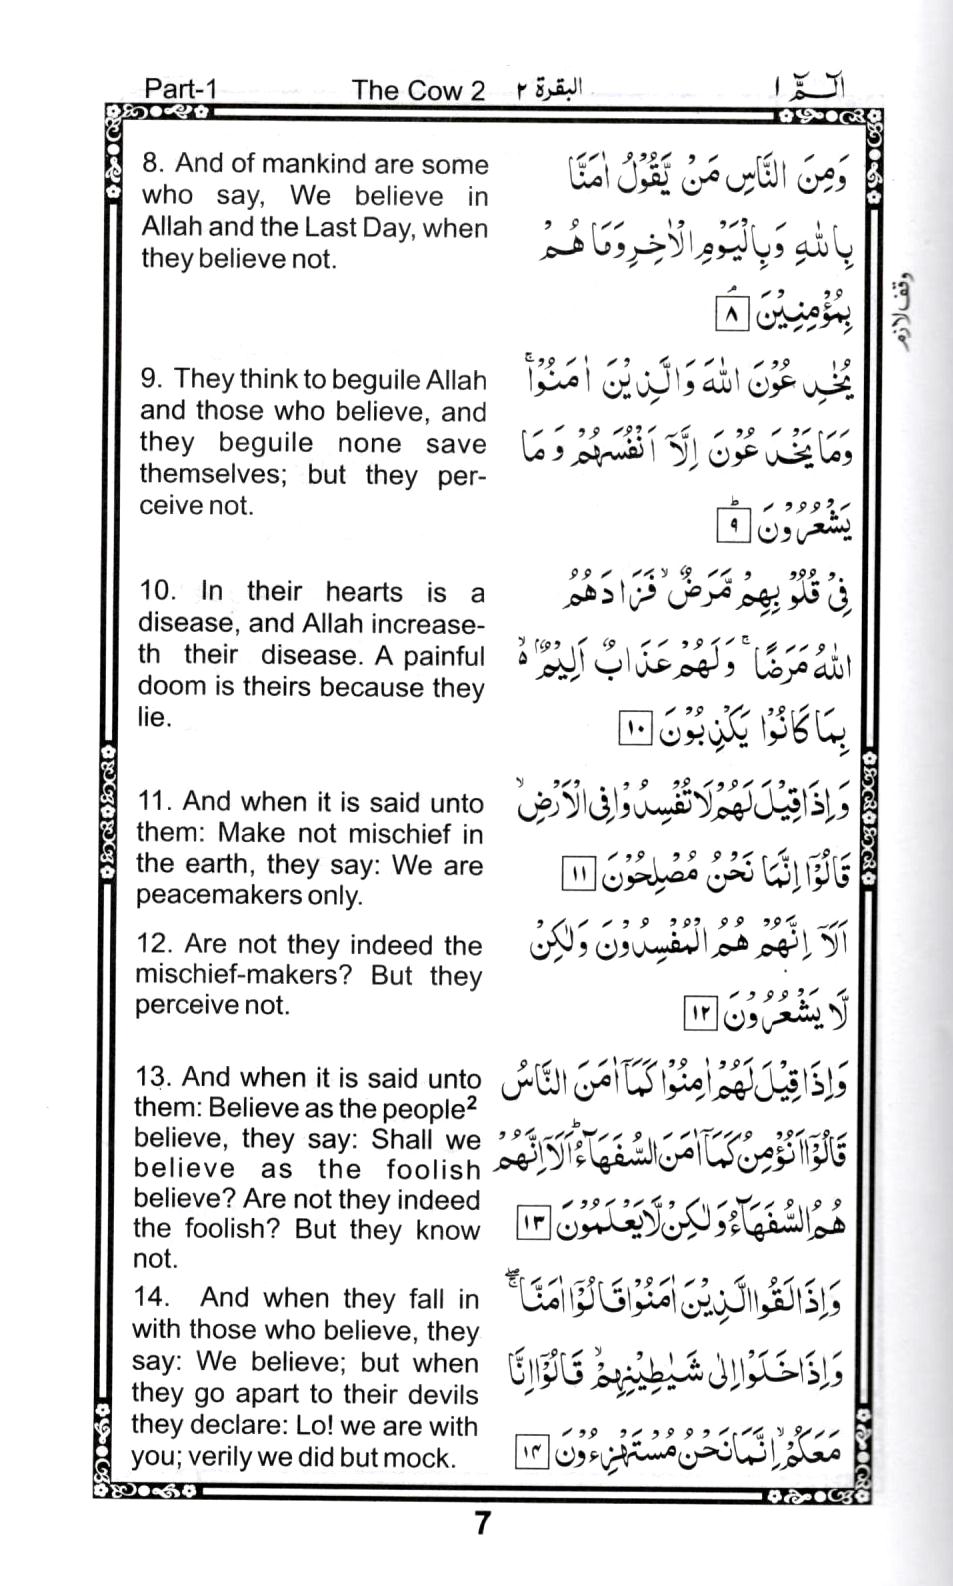 Part-1
The Cow 2 البقرة ٢
الٓمّٓ ١
8. And of mankind are some
who say, We believe in
Allah and the Last Day, when
they believe not.
وَمِنَ النَّاسِ مَنْ يَّقُوْلُ اٰمَنَّا
بِاللّٰهِ وَبِالْيَوْمِ الْاٰخِرِ وَمَا هُمْ
بِمُؤْمِنِيْنَۘ ٨
وقف لازم
9. They think to beguile Allah
and those who believe, and
they beguile none save
themselves; but they per-
ceive not.
يُخٰدِعُوْنَ اللّٰهَ وَالَّذِيْنَ اٰمَنُوْاۚ
وَمَا يَخْدَعُوْنَ اِلَّآ اَنْفُسَهُمْ وَمَا
يَشْعُرُوْنَؕ ٩
10. In their hearts is a
disease, and Allah increase-
th their disease. A painful
doom is theirs because they
lie.
فِيْ قُلُوْبِهِمْ مَّرَضٌۙ فَزَادَهُمُ
اللّٰهُ مَرَضًاۚ وَلَهُمْ عَذَابٌ اَلِيْمٌۢۙ ە
بِمَا كَانُوْا يَكْذِبُوْنَ ١٠
11. And when it is said unto
them: Make not mischief in
the earth, they say: We are
peacemakers only.
وَاِذَا قِيْلَ لَهُمْ لَا تُفْسِدُوْا فِى الْاَرْضِۙ
قَالُوْٓا اِنَّمَا نَحْنُ مُصْلِحُوْنَ ١١
12. Are not they indeed the
mischief-makers? But they
perceive not.
اَلَآ اِنَّهُمْ هُمُ الْمُفْسِدُوْنَ وَلٰكِنْ
لَّا يَشْعُرُوْنَ ١٢
13. And when it is said unto
them: Believe as the people²
believe, they say: Shall we
believe as the foolish
believe? Are not they indeed
the foolish? But they know
not.
وَاِذَا قِيْلَ لَهُمْ اٰمِنُوْا كَمَآ اٰمَنَ النَّاسُ
قَالُوْٓا اَنُؤْمِنُ كَمَآ اٰمَنَ السُّفَهَآءُؕ اَلَآ اِنَّهُمْ
هُمُ السُّفَهَآءُ وَلٰكِنْ لَّا يَعْلَمُوْنَ ١٣
14. And when they fall in
with those who believe, they
say: We believe; but when
they go apart to their devils
they declare: Lo! we are with
you; verily we did but mock.
وَاِذَا لَقُوا الَّذِيْنَ اٰمَنُوْا قَالُوْٓا اٰمَنَّاۖۚ
وَاِذَا خَلَوْا اِلٰى شَيٰطِيْنِهِمْۙ قَالُوْٓا اِنَّا
مَعَكُمْۙ اِنَّمَا نَحْنُ مُسْتَهْزِءُوْنَ ١٤
7